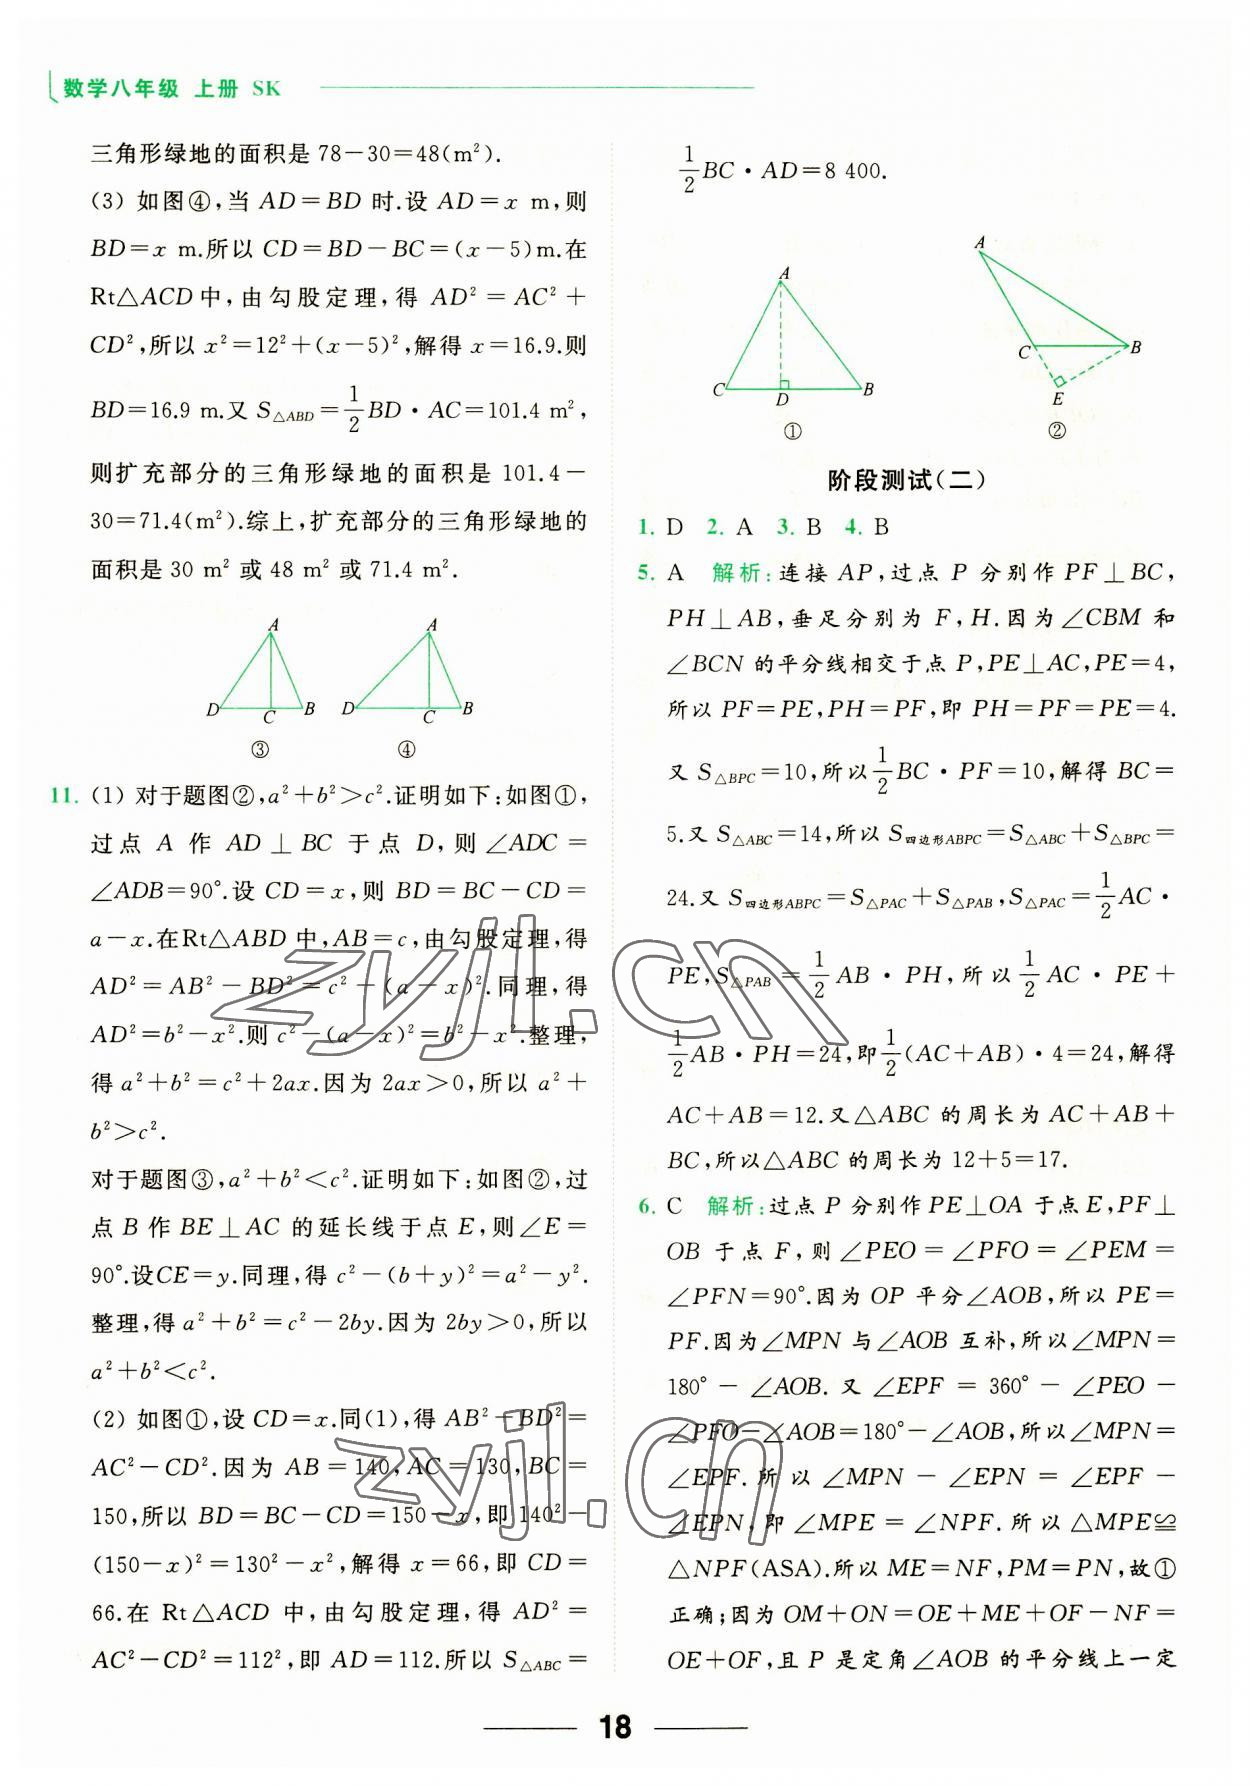 数学八年级 上册 SK
三角形绿地的面积是 78－30＝48(m²).
(3) 如图④,当 AD＝BD 时.设 AD＝x m,则
BD＝x m.所以 CD＝BD－BC＝(x－5)m.在
Rt△ACD中,由勾股定理,得 AD²＝AC²＋
CD²,所以 x²＝12²＋(x－5)²,解得 x＝16.9.则
BD＝16.9 m.又 S△ABD＝1/2BD·AC＝101.4 m²,
则扩充部分的三角形绿地的面积是 101.4－
30＝71.4(m²).综上,扩充部分的三角形绿地的
面积是 30 m² 或 48 m² 或 71.4 m².
A A
D C B D C B
③ ④
11. (1) 对于题图②,a²＋b²＞c².证明如下:如图①,
过点 A 作 AD⊥BC 于点 D,则∠ADC＝
∠ADB＝90°.设 CD＝x,则 BD＝BC－CD＝
a－x.在Rt△ABD中,AB＝c,由勾股定理,得
AD²＝AB²－BD²＝c²－(a－x)².同理,得
AD²＝b²－x².则 c²－(a－x)²＝b²－x².整理,
得 a²＋b²＝c²＋2ax.因为 2ax＞0,所以 a²＋
b²＞c².
对于题图③,a²＋b²＜c².证明如下:如图②,过
点 B 作 BE⊥AC 的延长线于点 E,则∠E＝
90°.设CE＝y.同理,得 c²－(b＋y)²＝a²－y².
整理,得 a²＋b²＝c²－2by.因为 2by＞0,所以
a²＋b²＜c².
(2) 如图①,设 CD＝x.同(1),得 AB²－BD²＝
AC²－CD².因为 AB＝140,AC＝130,BC＝
150,所以 BD＝BC－CD＝150－x,即 140²－
(150－x)²＝130²－x²,解得 x＝66,即 CD＝
66.在 Rt△ACD 中,由勾股定理,得 AD²＝
AC²－CD²＝112²,即 AD＝112.所以 S△ABC＝
1/2BC·AD＝8 400.
A A
C D B C B E
① ②
阶段测试(二)
1. D 2. A 3. B 4. B
5. A 解析:连接 AP,过点 P 分别作 PF⊥BC,
PH⊥AB,垂足分别为 F,H.因为∠CBM 和
∠BCN 的平分线相交于点 P,PE⊥AC,PE＝4,
所以 PF＝PE,PH＝PF,即 PH＝PF＝PE＝4.
又 S△BPC＝10,所以1/2BC·PF＝10,解得 BC＝
5.又 S△ABC＝14,所以 S四边形ABPC＝S△ABC＋S△BPC＝
24.又 S四边形ABPC＝S△PAC＋S△PAB,S△PAC＝1/2AC·
PE,S△PAB＝1/2AB·PH,所以1/2AC·PE＋
1/2AB·PH＝24,即1/2(AC＋AB)·4＝24,解得
AC＋AB＝12.又△ABC 的周长为 AC＋AB＋
BC,所以△ABC 的周长为 12＋5＝17.
6. C 解析:过点 P 分别作 PE⊥OA 于点 E,PF⊥
OB 于点 F,则∠PEO＝∠PFO＝∠PEM＝
∠PFN＝90°.因为 OP 平分∠AOB,所以 PE＝
PF.因为∠MPN 与∠AOB 互补,所以∠MPN＝
180°－∠AOB.又∠EPF＝360°－∠PEO－
∠PFO－∠AOB＝180°－∠AOB,所以∠MPN＝
∠EPF.所以∠MPN－∠EPN＝∠EPF－
∠EPN,即∠MPE＝∠NPF.所以△MPE≌
△NPF(ASA).所以 ME＝NF,PM＝PN,故①
正确;因为 OM＋ON＝OE＋ME＋OF－NF＝
OE＋OF,且 P 是定角∠AOB 的平分线上一定
zyjl.cn
zyjl.cn
18